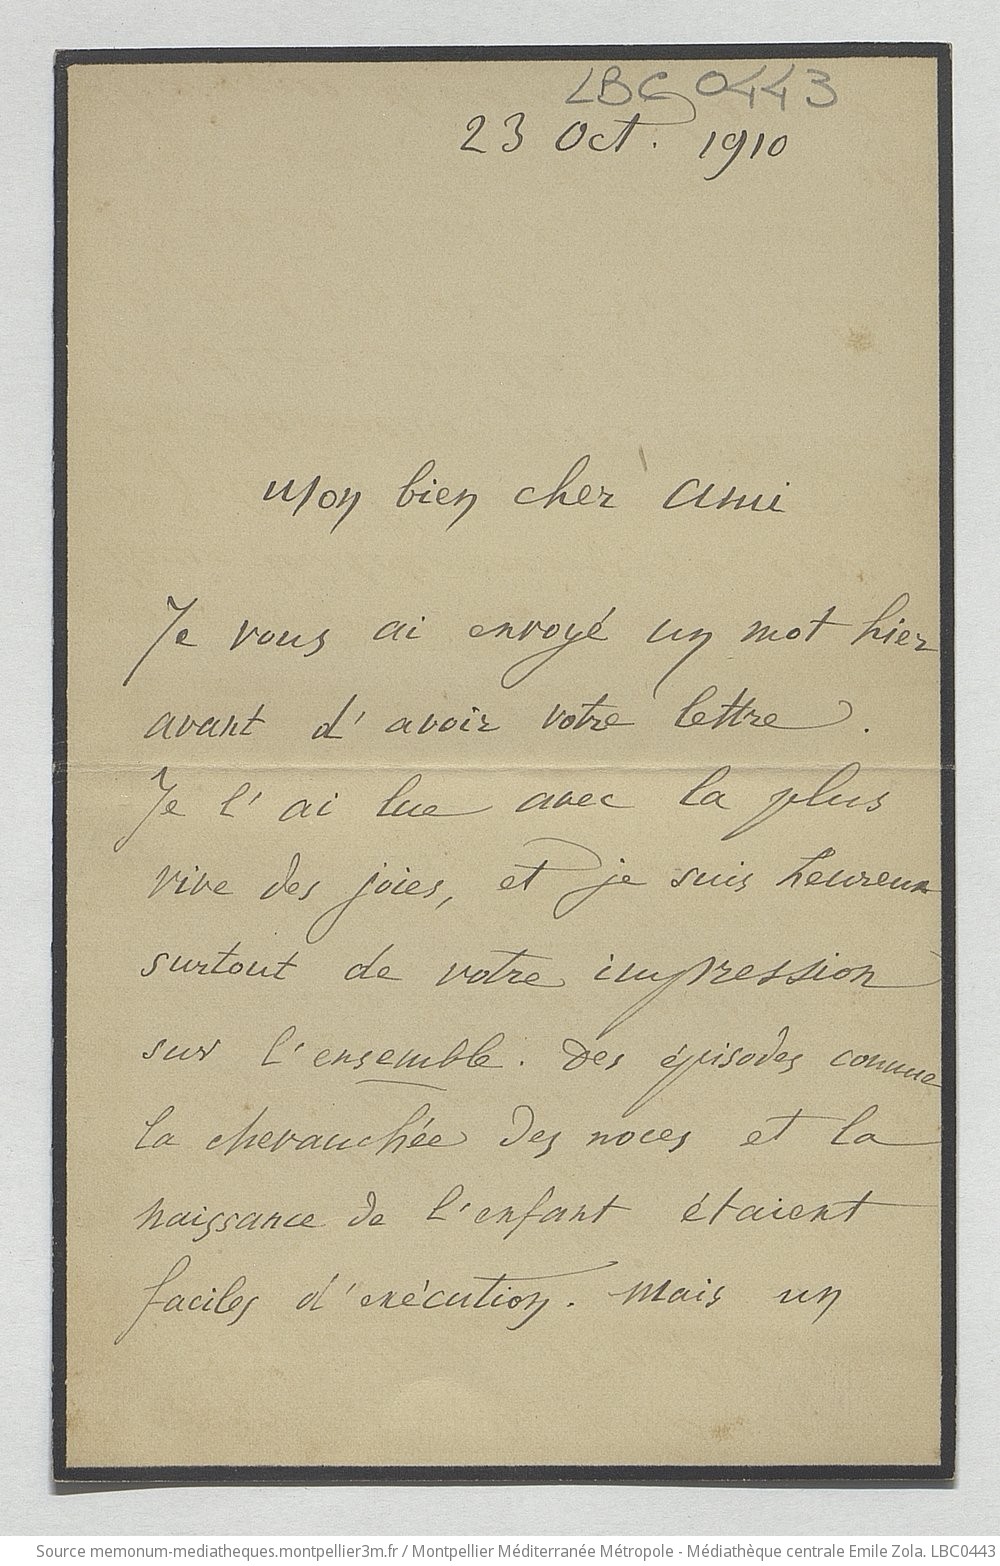 LBC 0443
23 Oct. 1910
Mon bien cher Ami
Je vous ai envoyé un mot hier
avant d'avoir votre lettre.
Je l'ai lue avec la plus
vive des joies, et je suis heureux
surtout de votre impression
sur l'ensemble. Des épisodes comme
la chevauchée des noces et la
naissance de l'enfant étaient
faciles d'exécution. Mais un
Source memonum-mediatheques.montpellier3m.fr / Montpellier Méditerranée Métropole - Médiathèque centrale Emile Zola. LBC0443